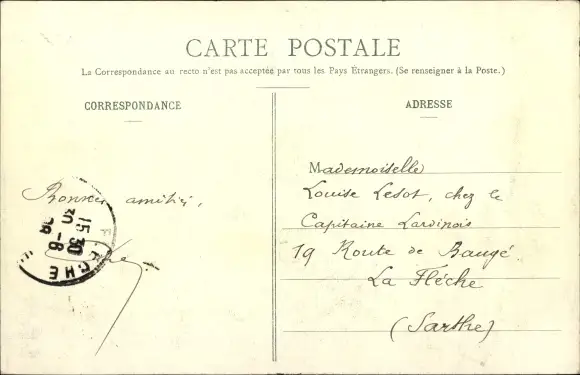 CARTE POSTALE
La Correspondance au recto n'est pas acceptée par tous les Pays Étrangers. (Se renseigner à la Poste.)
CORRESPONDANCE
ADRESSE
Bonnes amitiés,
Mademoiselle
Louise Lesot, chez le
Capitaine Lardinois
19 Route de Baugé
La Flèche
(Sarthe)
15 30
30 -8